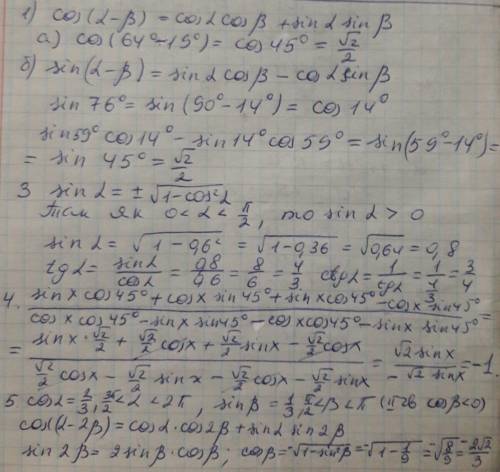 1) cos(α-β) = cosα cosβ + sinα sinβ
а) cos(64°-19°) = cos 45° = √2/2
б) sin(α-β) = sinα cosβ - cosα sinβ
sin 76° = sin(90°-14°) = cos 14°
sin 59° cos 14° - sin 14° cos 59° = sin(59°-14°) =
= sin 45° = √2/2
3 sin α = ±√(1-cos²α)
Так як 0 < α < π/2, то sin α > 0
sin α = √(1-0,6²) = √(1-0,36) = √0,64 = 0,8
tg α = sin α/cos α = 0,8/0,6 = 8/6 = 4/3 ctg α = 1/tg α = 1/(4/3) = 3/4
4. (sin x cos 45° + cos x sin 45° + sin x cos 45° - cos x sin 45°)/(cos x cos 45° - sin x sin 45° - cos x cos 45° - sin x sin 45°) =
= (sin x · √2/2 + √2/2 cos x + √2/2 sin x - √2/2 cos x)/(√2/2 cos x - √2/2 sin x - √2/2 cos x - √2/2 sin x) = √2 sin x/(-√2 sin x) = -1.
5. cos α = 1/3, 3π/2 < α < 2π, sin β = 1/3, π/2 < β < π (ІІ чв cos β < 0)
cos(α-2β) = cos α · cos 2β + sin α sin 2β
sin 2β = 2 sin β · cos β; cos β = -√(1-sin²β) = -√(1-1/9) = -√(8/9) = -2√2/3